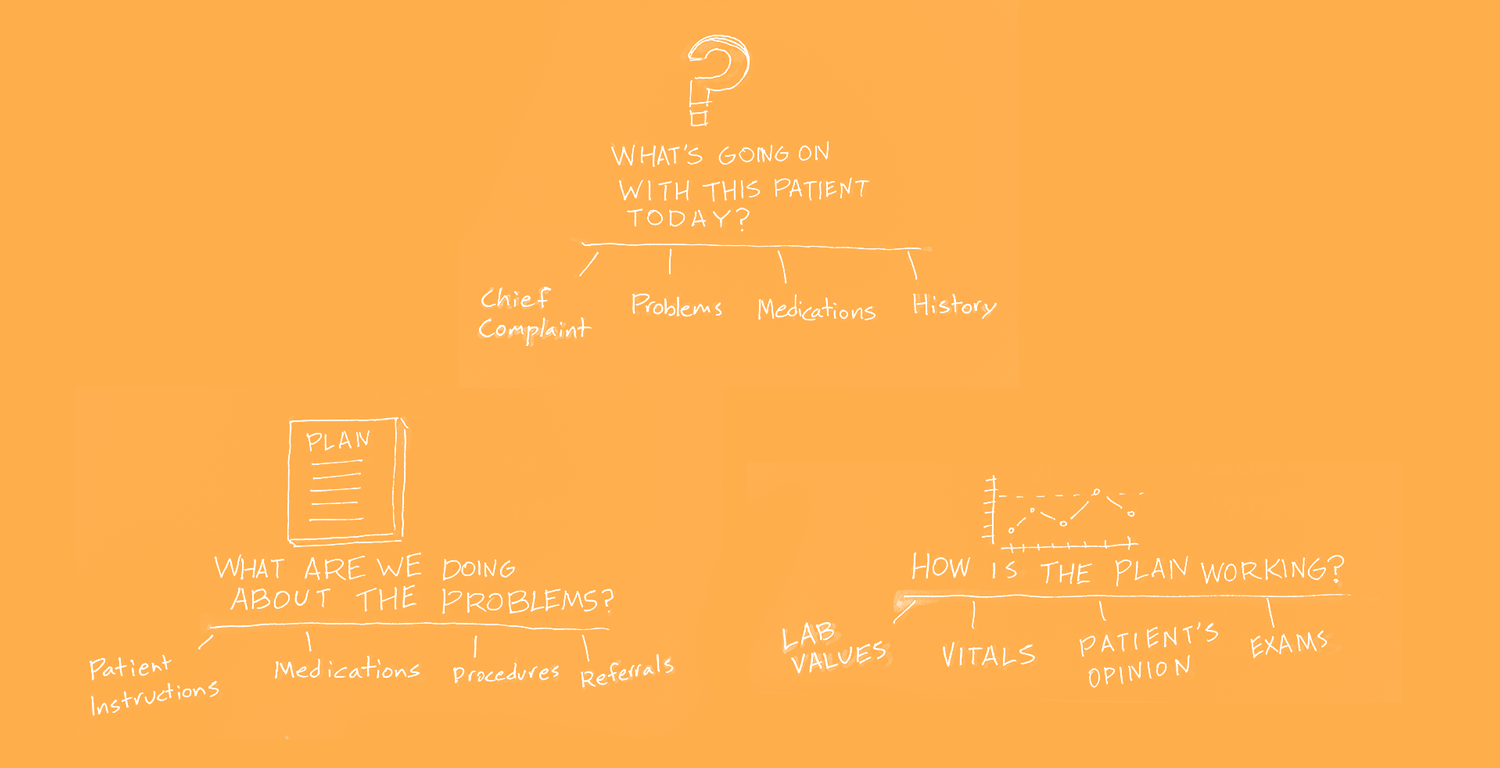 ?
WHAT'S GOING ON
WITH THIS PATIENT
TODAY?
Chief
Complaint
Problems
Medications
History
PLAN
WHAT ARE WE DOING
ABOUT THE PROBLEMS?
Patient
Instructions
Medications
Procedures
Referrals
HOW IS THE PLAN WORKING?
LAB
VALUES
VITALS
PATIENT'S
OPINION
EXAMS